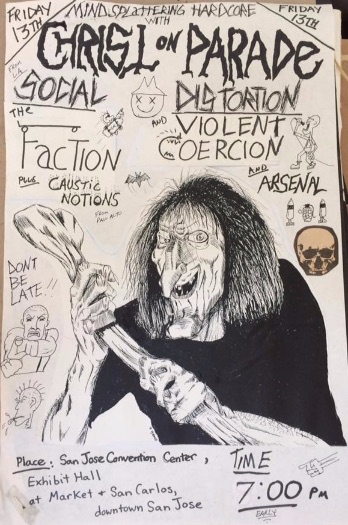 FRIDAY 13TH
MINDSPLATTERING HARDCORE
WITH
FRIDAY 13TH
CHRIST ON PARADE
FROM L.A.
SOCIAL DISTORTION
THE FACTION
AND
VIOLENT COERCION
PLUS
CAUSTIC NOTIONS
FROM PALO ALTO
AND
ARSENAL
DON'T
BE
LATE..!!
Place: San Jose Convention Center,
Exhibit Hall
at Market + San Carlos,
downtown San Jose
TIME
7:00 PM
EARLY